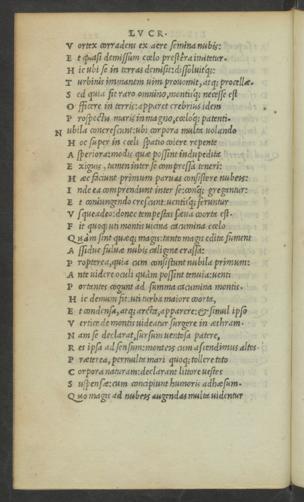 LVCR.
Vortex corradens ex aere semina nubis:
Et quasi demissum cœlo prestēra inuitetur.
Hic ubi se in terras demisit: dissoluitq;:
Turbinis immanem uim prouomit, atq; procellæ.
Sed quia fit raro omnino, montiq; necesse est
Officere in terris: apparet crebrius idem
Prospectu maris in magno, cœloq; patenti.
Nubila concrescunt: ubi corpora multa uolando
Hoc super in cœli spatio coiere repente
Asperiora: modis quæ possint indupedita
Exiguis, tamen inter se compressa teneri:
Hæc faciunt primum paruas consistere nubeis:
Inde ea comprendunt inter se: conq; gregantur:
Et coniungendo crescunt: uentisq; feruntur
Vsque adeo: donec tempestas sæua coorta est.
Fit quoq; uti montis uicina cacumina cœlo
Quàm sint quæq; magis: tanto magis edita fument
Assidue fuluæ nubis caligine crassa:
Propterea, quia cum consistunt nubila primum:
Ante uidere oculi quàm possint tenuia: uenti
Portantes cogunt ad summa cacumina montis.
Hic demum fit: uti turba maiore coorta,
Et condensa, atq; arcta, apparere: & simul ipso
Vertice de montis uideatur surgere in æthram.
Nam se declarat, sursum uentosa patere,
Res ipsa ad sensum: monteis cum ascendimus altos.
Præterea, permulta mari quoq; tollere toto
Corpora naturam: declarant littore uestes
Suspensæ: cum concipiunt humoris adhæsum.
Quo magis ad nubeis augendas multa uidentur